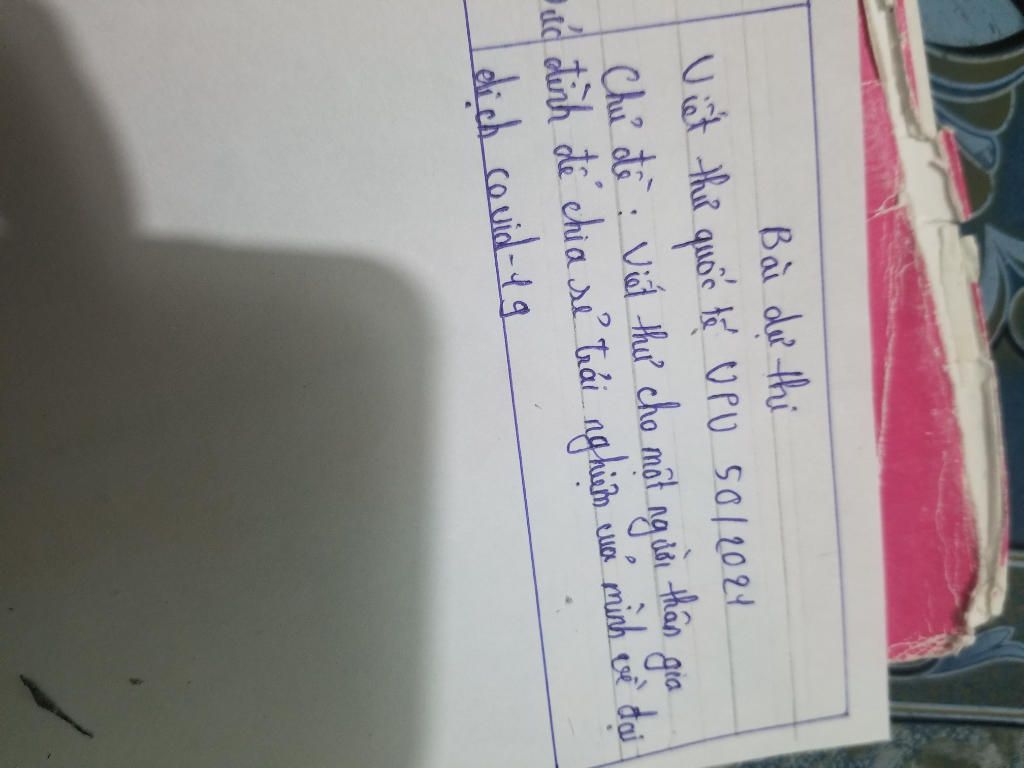 Bài dự thi
Viết thư quốc tế UPU 50/2021
Chủ đề: Viết thư cho một người thân gia
đình để chia sẻ trải nghiệm của mình về đại
dịch covid-19